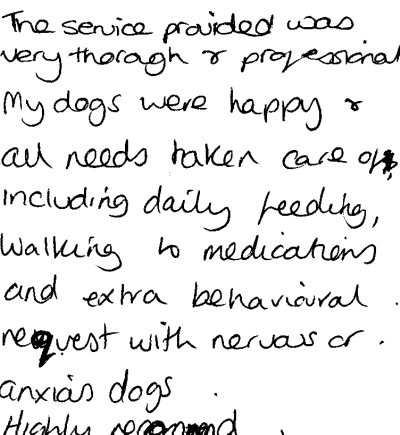 The service provided was
very thoragh & professional
My dogs were happy &
all needs taken care of,
including daily feeding,
walking to medications
and extra behavioural .
request with nervous or .
anxias dogs .
Highly recommend .